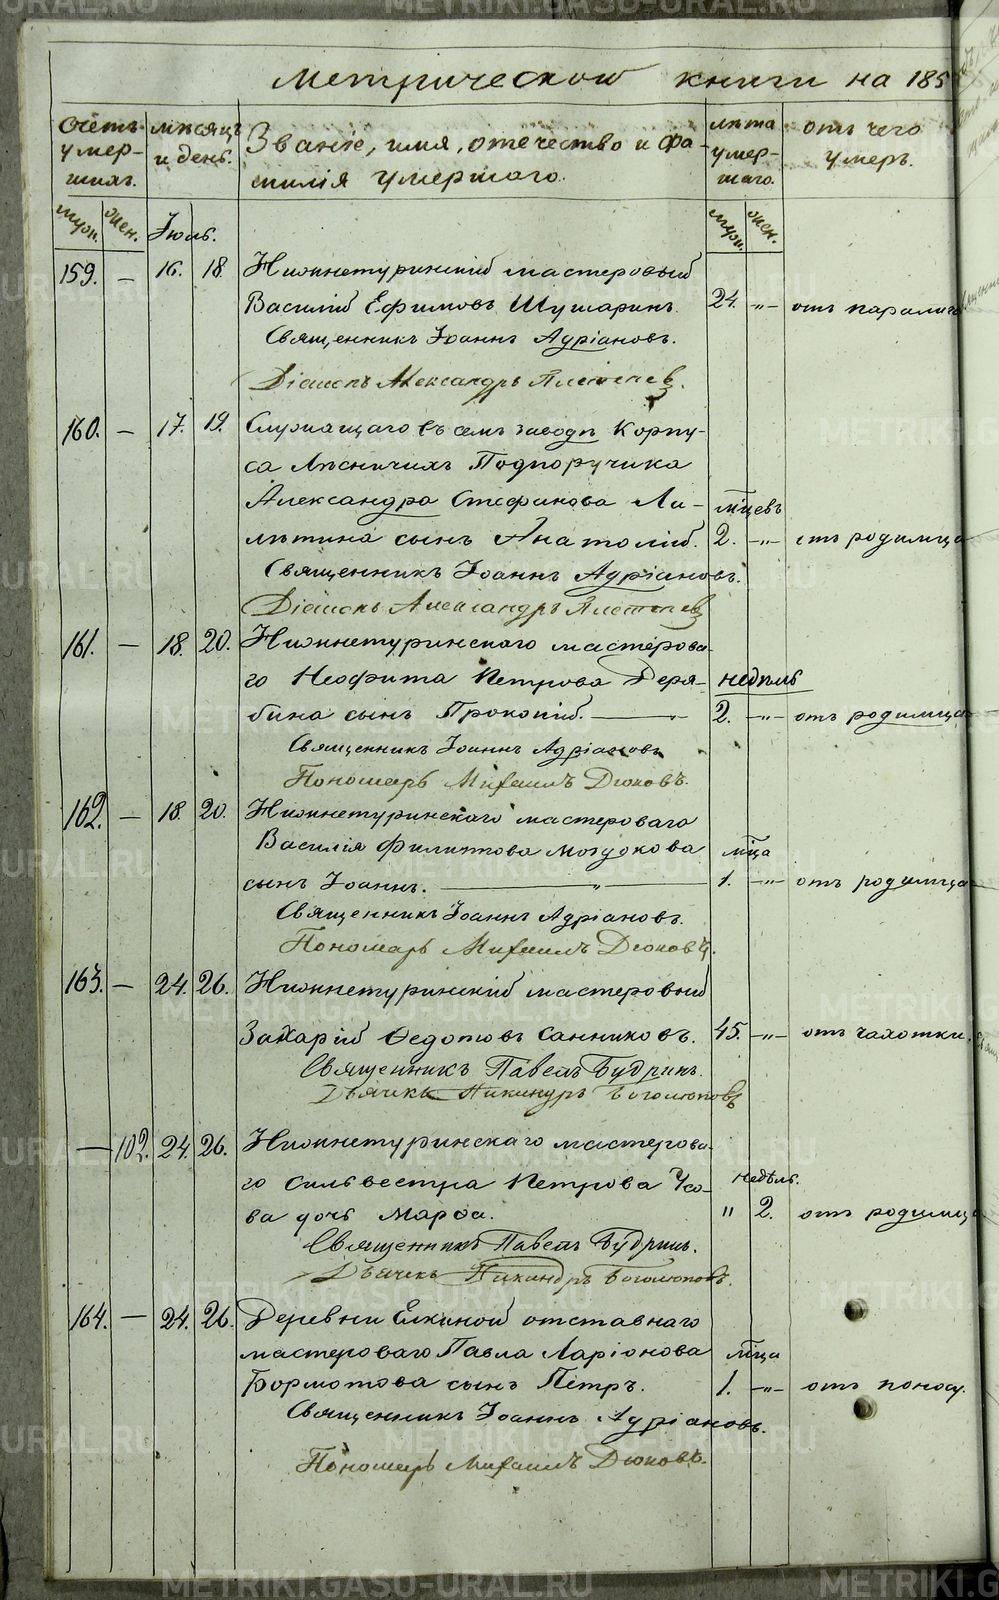 Метрической книги на 185
Счетъ умершихъ.
мѣсяцъ и день.
Званіе, имя, отечество и фамилія умершаго.
лѣта умершаго.
отъ чего умеръ.
муж. жен. Іюль. муж. жен.
159. — 16. 18. Нижнетуринскій мастеровый
Василій Ефимовъ Шушаринъ. 24. -"- отъ паралича
Священникъ Іоаннъ Адріановъ.
Діаконъ Александръ
160. — 17. 19. Служащаго въ семъ заводѣ Корпу-
са Лѣсничихъ Подпоручика
Александра Стефанова Ми- мѣсцевъ
лѣтина сынъ Анатолій. 2. -"- отъ родимца
Священникъ Іоаннъ Адріановъ.
Діаконъ Александръ
161. — 18. 20. Нижнетуринскаго мастерова-
го Неофита Петрова Деря- недѣль
бина сынъ Прокопій. — " 2. -"- отъ родимца
Священникъ Іоаннъ Адріановъ
Пономарь Михаилъ Дюковъ.
162. — 18. 20. Нижнетуринскаго мастероваго
Василія Филиппова Мозжокова мѣсца
сынъ Іоаннъ. — " — 1. -"- отъ родимца
Священникъ Іоаннъ Адріановъ.
Пономарь Михаилъ Дюковъ.
163. — 24. 26. Нижнетуринскій мастеровый
Захарій Ѳедотовъ Санниковъ. 45. -"- отъ чахотки.
Священникъ Павелъ Будринъ.
Дьячекъ Никандръ Боголюповъ
— 102. 24. 26. Нижнетуринскаго мастерова-
го Сильвестра Петрова Усо- недѣль.
ва дочь Марѳа. " 2. отъ родимца
Священникъ Павелъ Будринъ.
Дьячекъ Никандръ Боголюповъ.
164. — 24. 26. Деревни Елкиной отставнаго
мастероваго Павла Ларіонова мѣсца
Бормотова сынъ Петръ. 1. -"- отъ поносу.
Священникъ Іоаннъ Адріановъ.
Пономарь Михаилъ Дюковъ.
METRIKI.GASO-URAL.RU